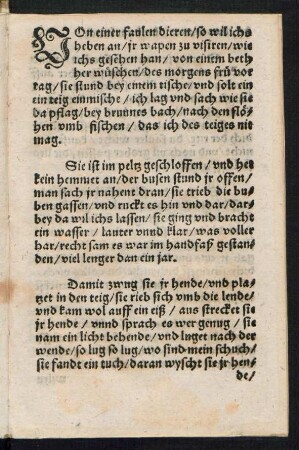 VOn einer faulen dieren/so wil ichs
heben an/jr wapen zu visiren/wie
ichs gesehen han/von einem beth
her wüschen/des morgens frü vor
tag/sie stund bey einem tische/vnd solt ein
ein teig einmische/ich lag vnd sach wie sie
da pflag/bey brunnes bach/nach den flö
hen vmb fischen/das ich des teiges nit
mag.
Sie ist im peltz geschloffen/vnd het
kein hemmet an/der busen stund jr offen/
man sach jr nahent dran/sie trieb die bu
ben gassen/vnd ruckt es hin vnd dar/dar
bey da wil ichs lassen/sie ging vnd bracht
ein wasser/lauter vnnd klar/was voller
har/recht sam es war im handfaß gestan
den/viel lenger dan ein jar.
Damit zwug sie jr hende/vnd pla
tzet in den teig/sie rieb sich vmb die lende/
vnd kam wol auff ein eiß/aus strecket sie
jr hende/vnnd sprach es wer genug/sie
nam ein licht behende/vnd luget nach der
wende/so lug so lug/wo sind mein schuch/
sie fandt ein tuch/daran wyscht sie jr hen
de/